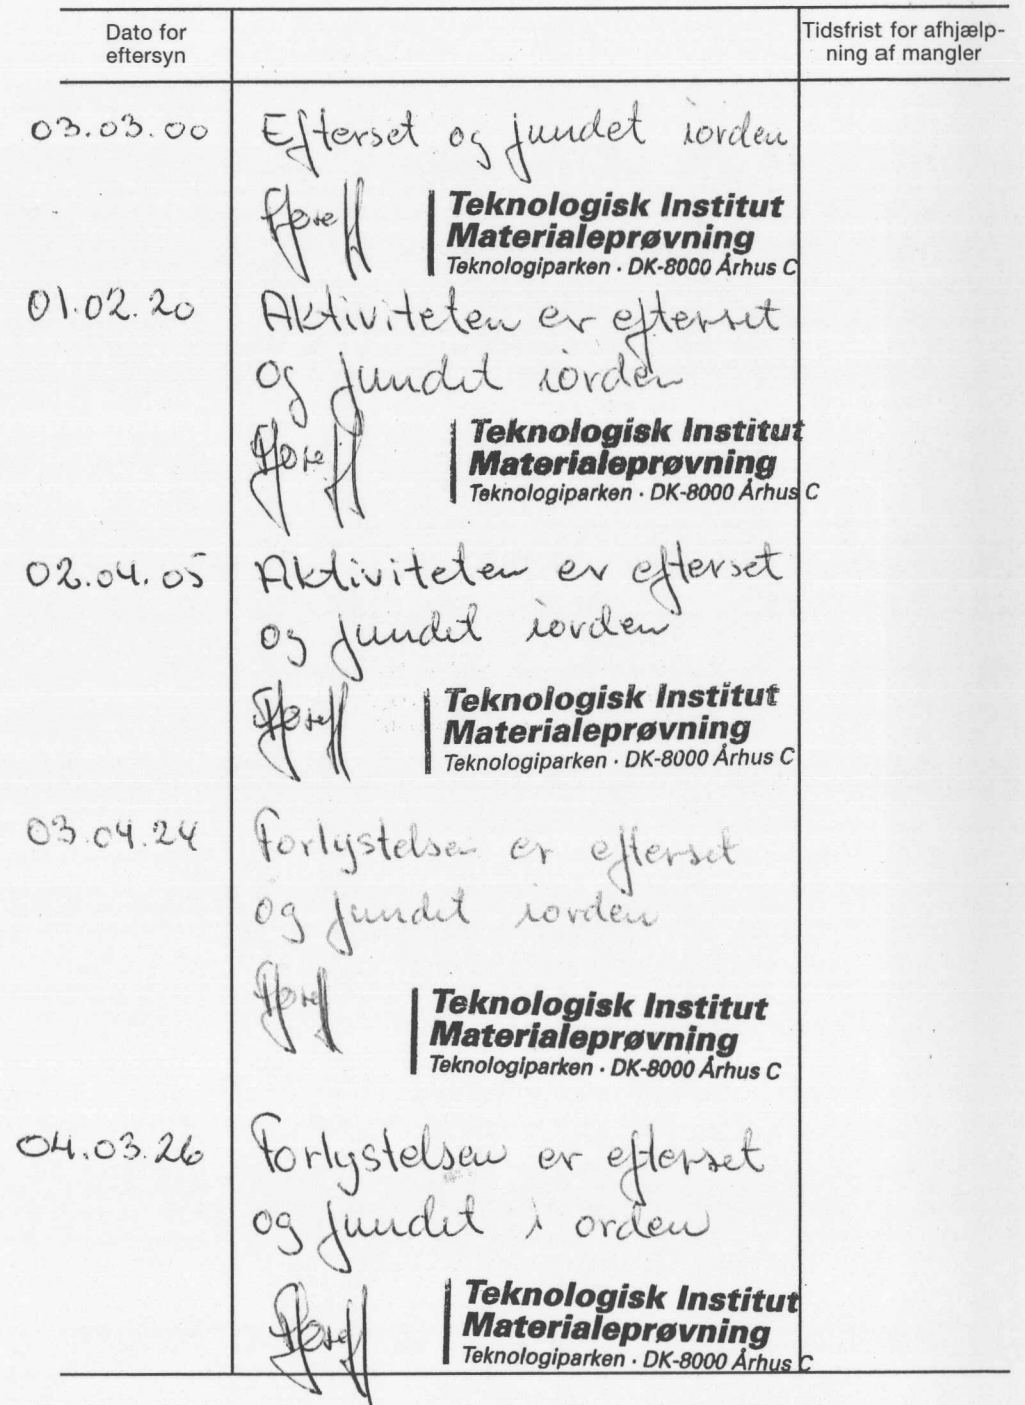 Dato for
eftersyn
Tidsfrist for afhjælp-
ning af mangler
03.03.00 Efterset og fundet iorden
Teknologisk Institut
Materialeprøvning
Teknologiparken · DK-8000 Århus C
01.02.20 Aktiviteten er efterset
og fundet iorden
Teknologisk Institut
Materialeprøvning
Teknologiparken · DK-8000 Århus C
02.04.05 Aktiviteten er efterset
og fundet iorden
Teknologisk Institut
Materialeprøvning
Teknologiparken · DK-8000 Århus C
03.04.24 Forlystelsen er efterset
og fundet iorden
Teknologisk Institut
Materialeprøvning
Teknologiparken · DK-8000 Århus C
04.03.26 Forlystelsen er efterset
og fundet i orden
Teknologisk Institut
Materialeprøvning
Teknologiparken · DK-8000 Århus C